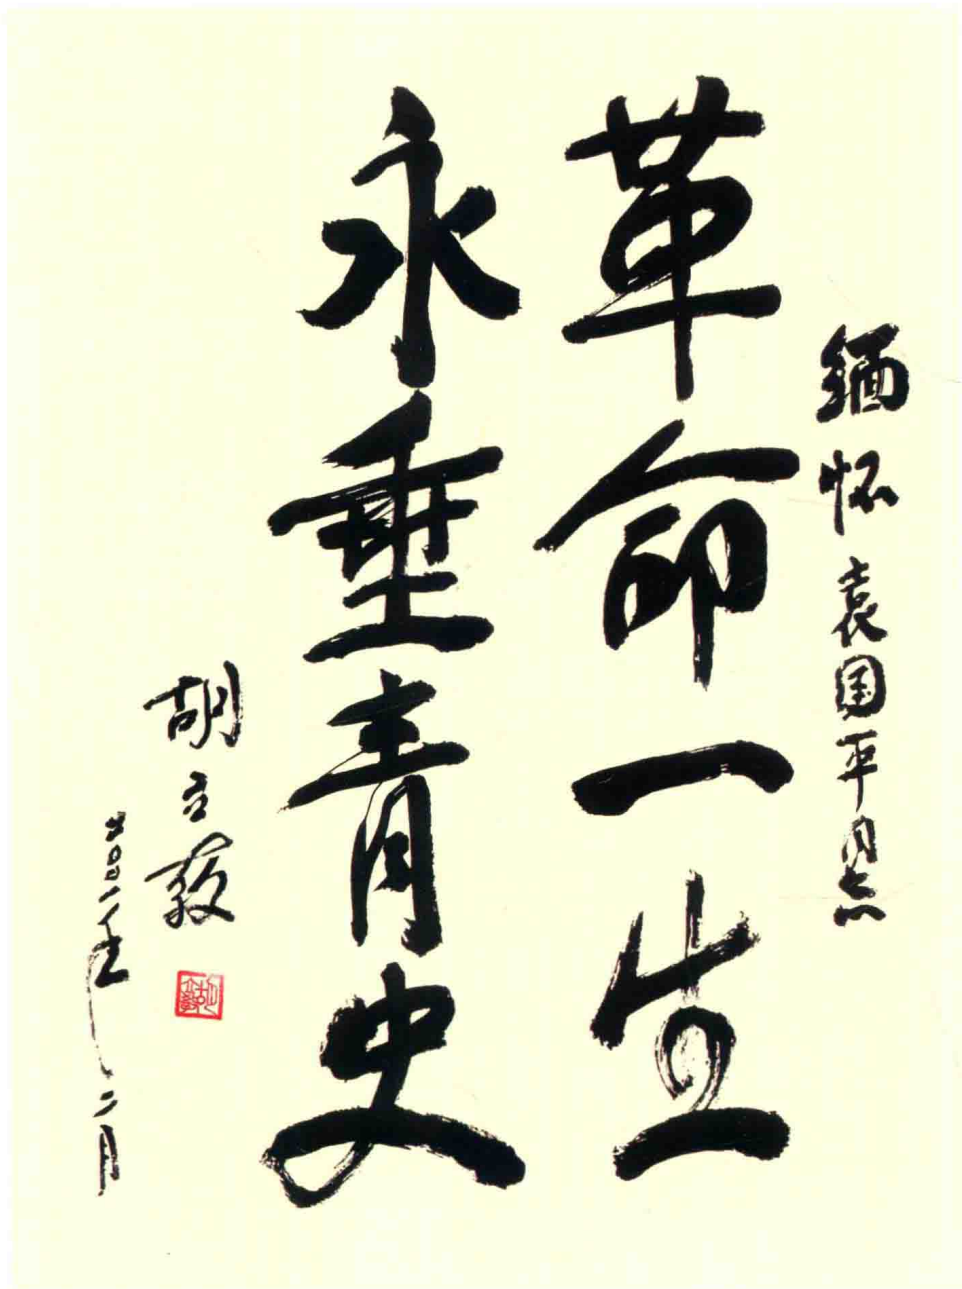 缅怀袁国平同志
革命一生
永垂青史
胡立教
二〇〇一年二月